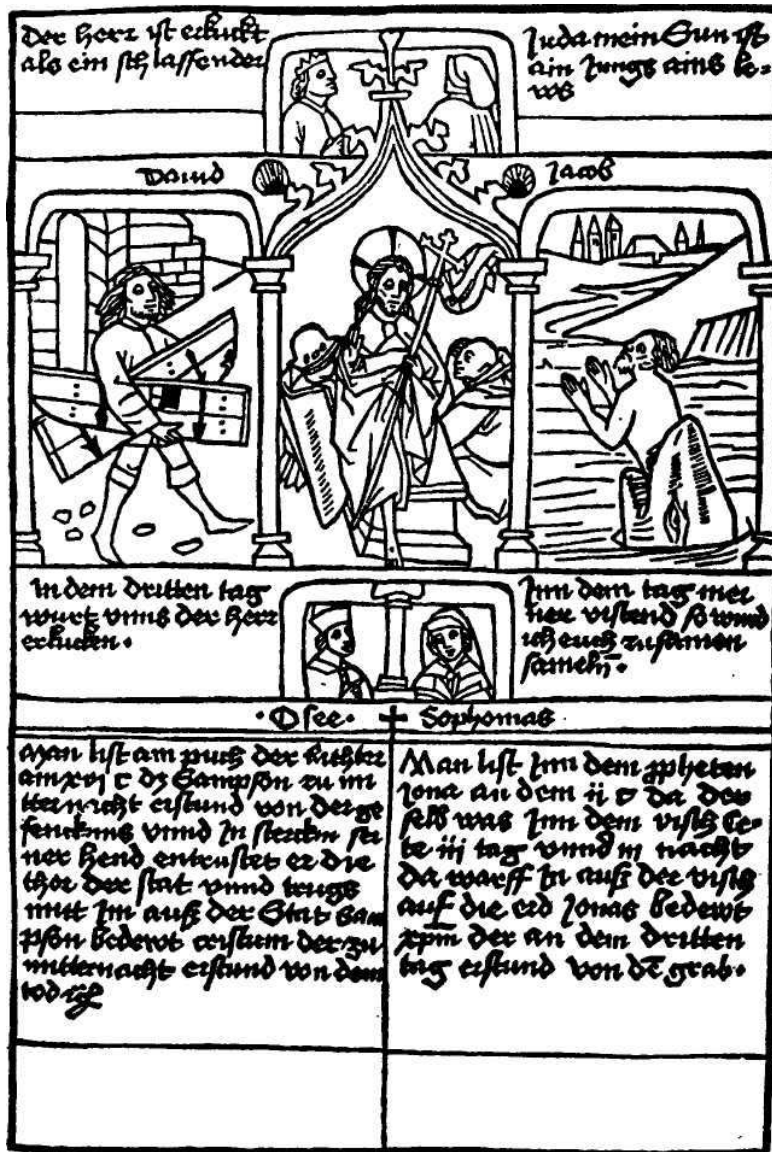 Der herr ist erkuckt
als ein schlaffender
Juda mein Sun ist
ain Jungs ains le-
ws
Dauid
Jacob
In dem dritten tag
wurt vnns der herr
erkucken.
Jnn dem tag mei
ner vrstend so wird
ich euch zu samen
sameln.
Osee.
Sophonias
Man list am puch der Richter
am xvi c dz Sampson zu mi
tternacht erstund von der ge
fencknus vnnd In stercken sei
ner hend entrustet er die
thor der stat vnnd trugs
mitt Im auß der Stat Sam
pson bedewt cristum der zu
mitternacht erstund von dem
tod
Man list Jnn dem ppheten
Jona an dem ii c da der
selb was Jnn dem visch Ce-
te iii tag vnnd iii nacht
da warff In auß der visch
auf die erd Jonas bedewt
xpm der an dem dritten
tag erstund von de grab.